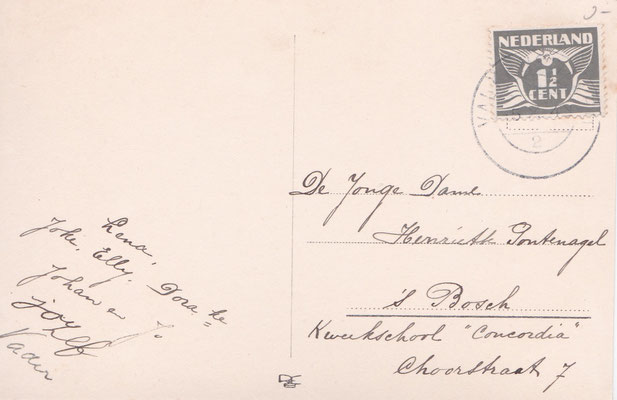 NEDERLAND
1 1/2
CENT
VAL
2
De Jonge Dame
Henriett Gontenagel
's Bosch
Kweekschool "Concordia"
Choorstraat 7
Lena,
Joke, Elly, Dora
Johan en Jo
Vader